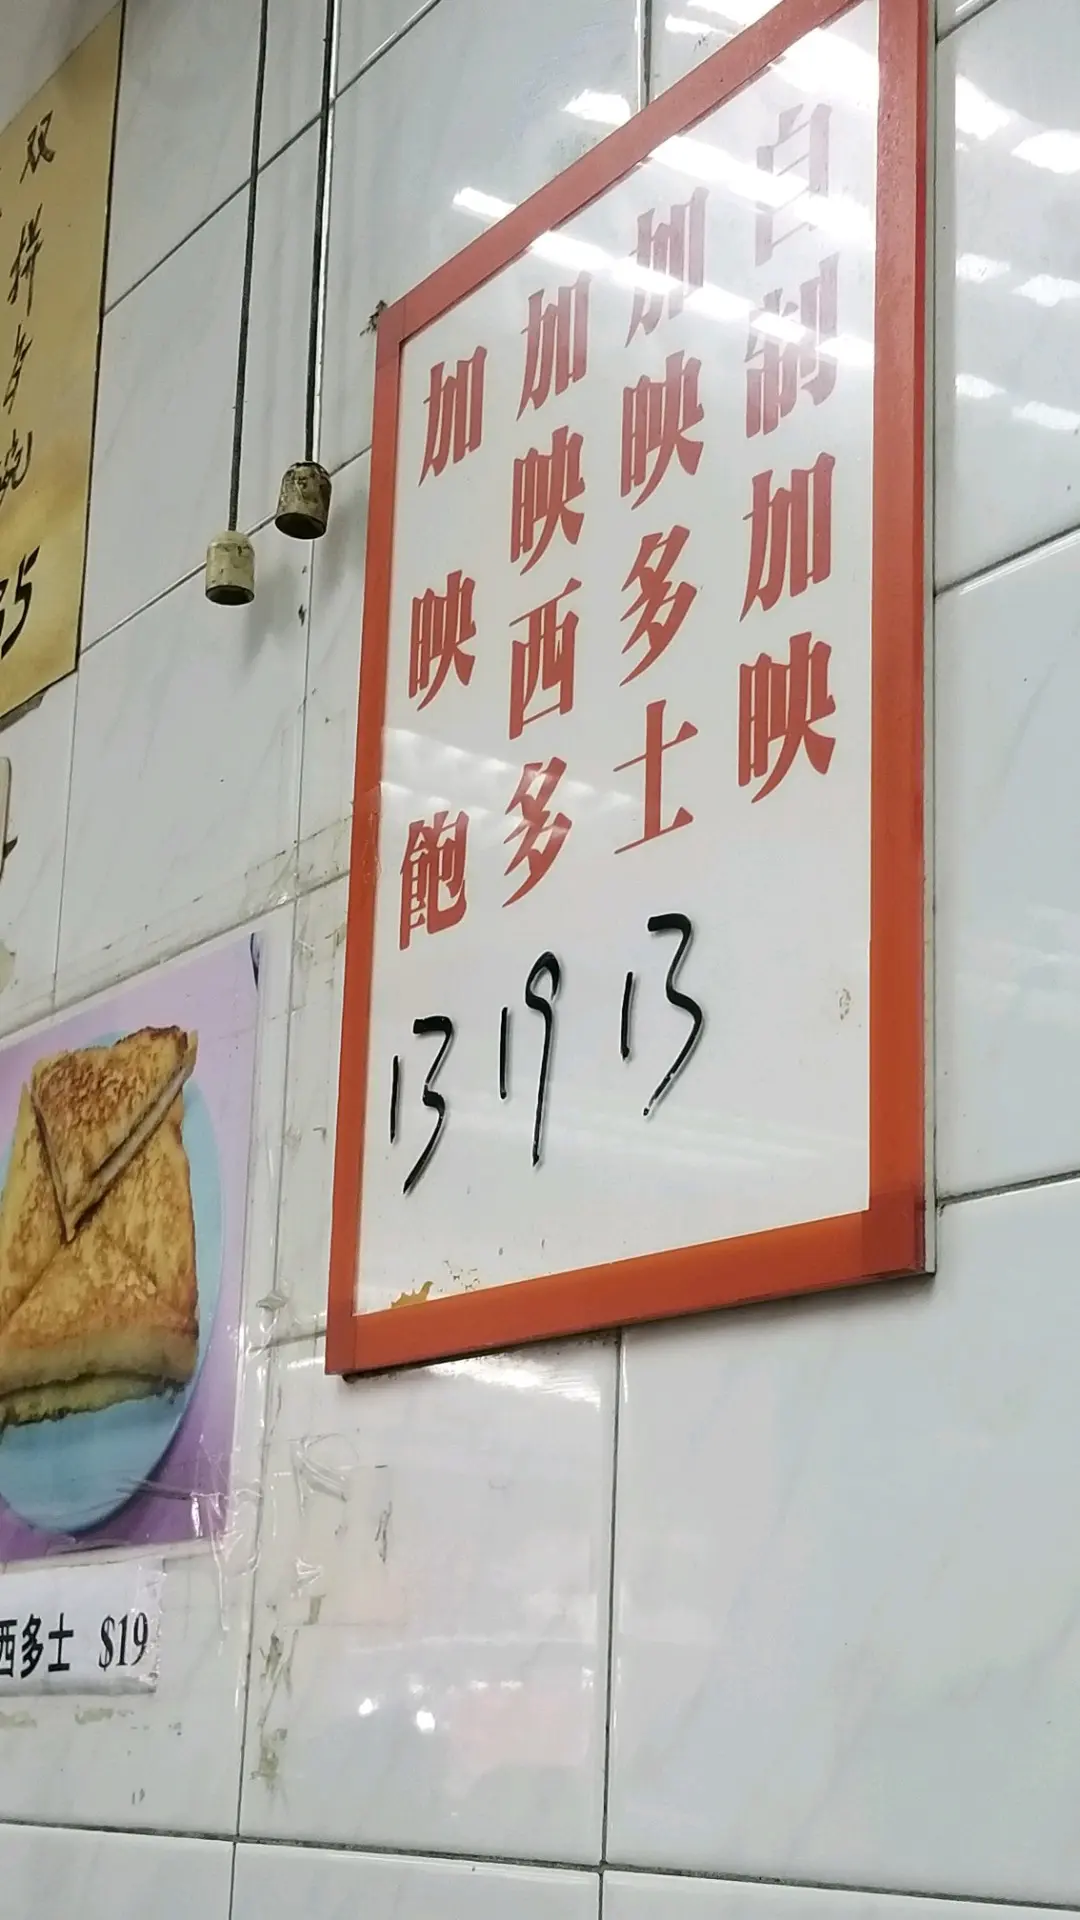 自制加映
加映多士
13
加映西多
19
加映飽
13
双拼
35
西多士 $19